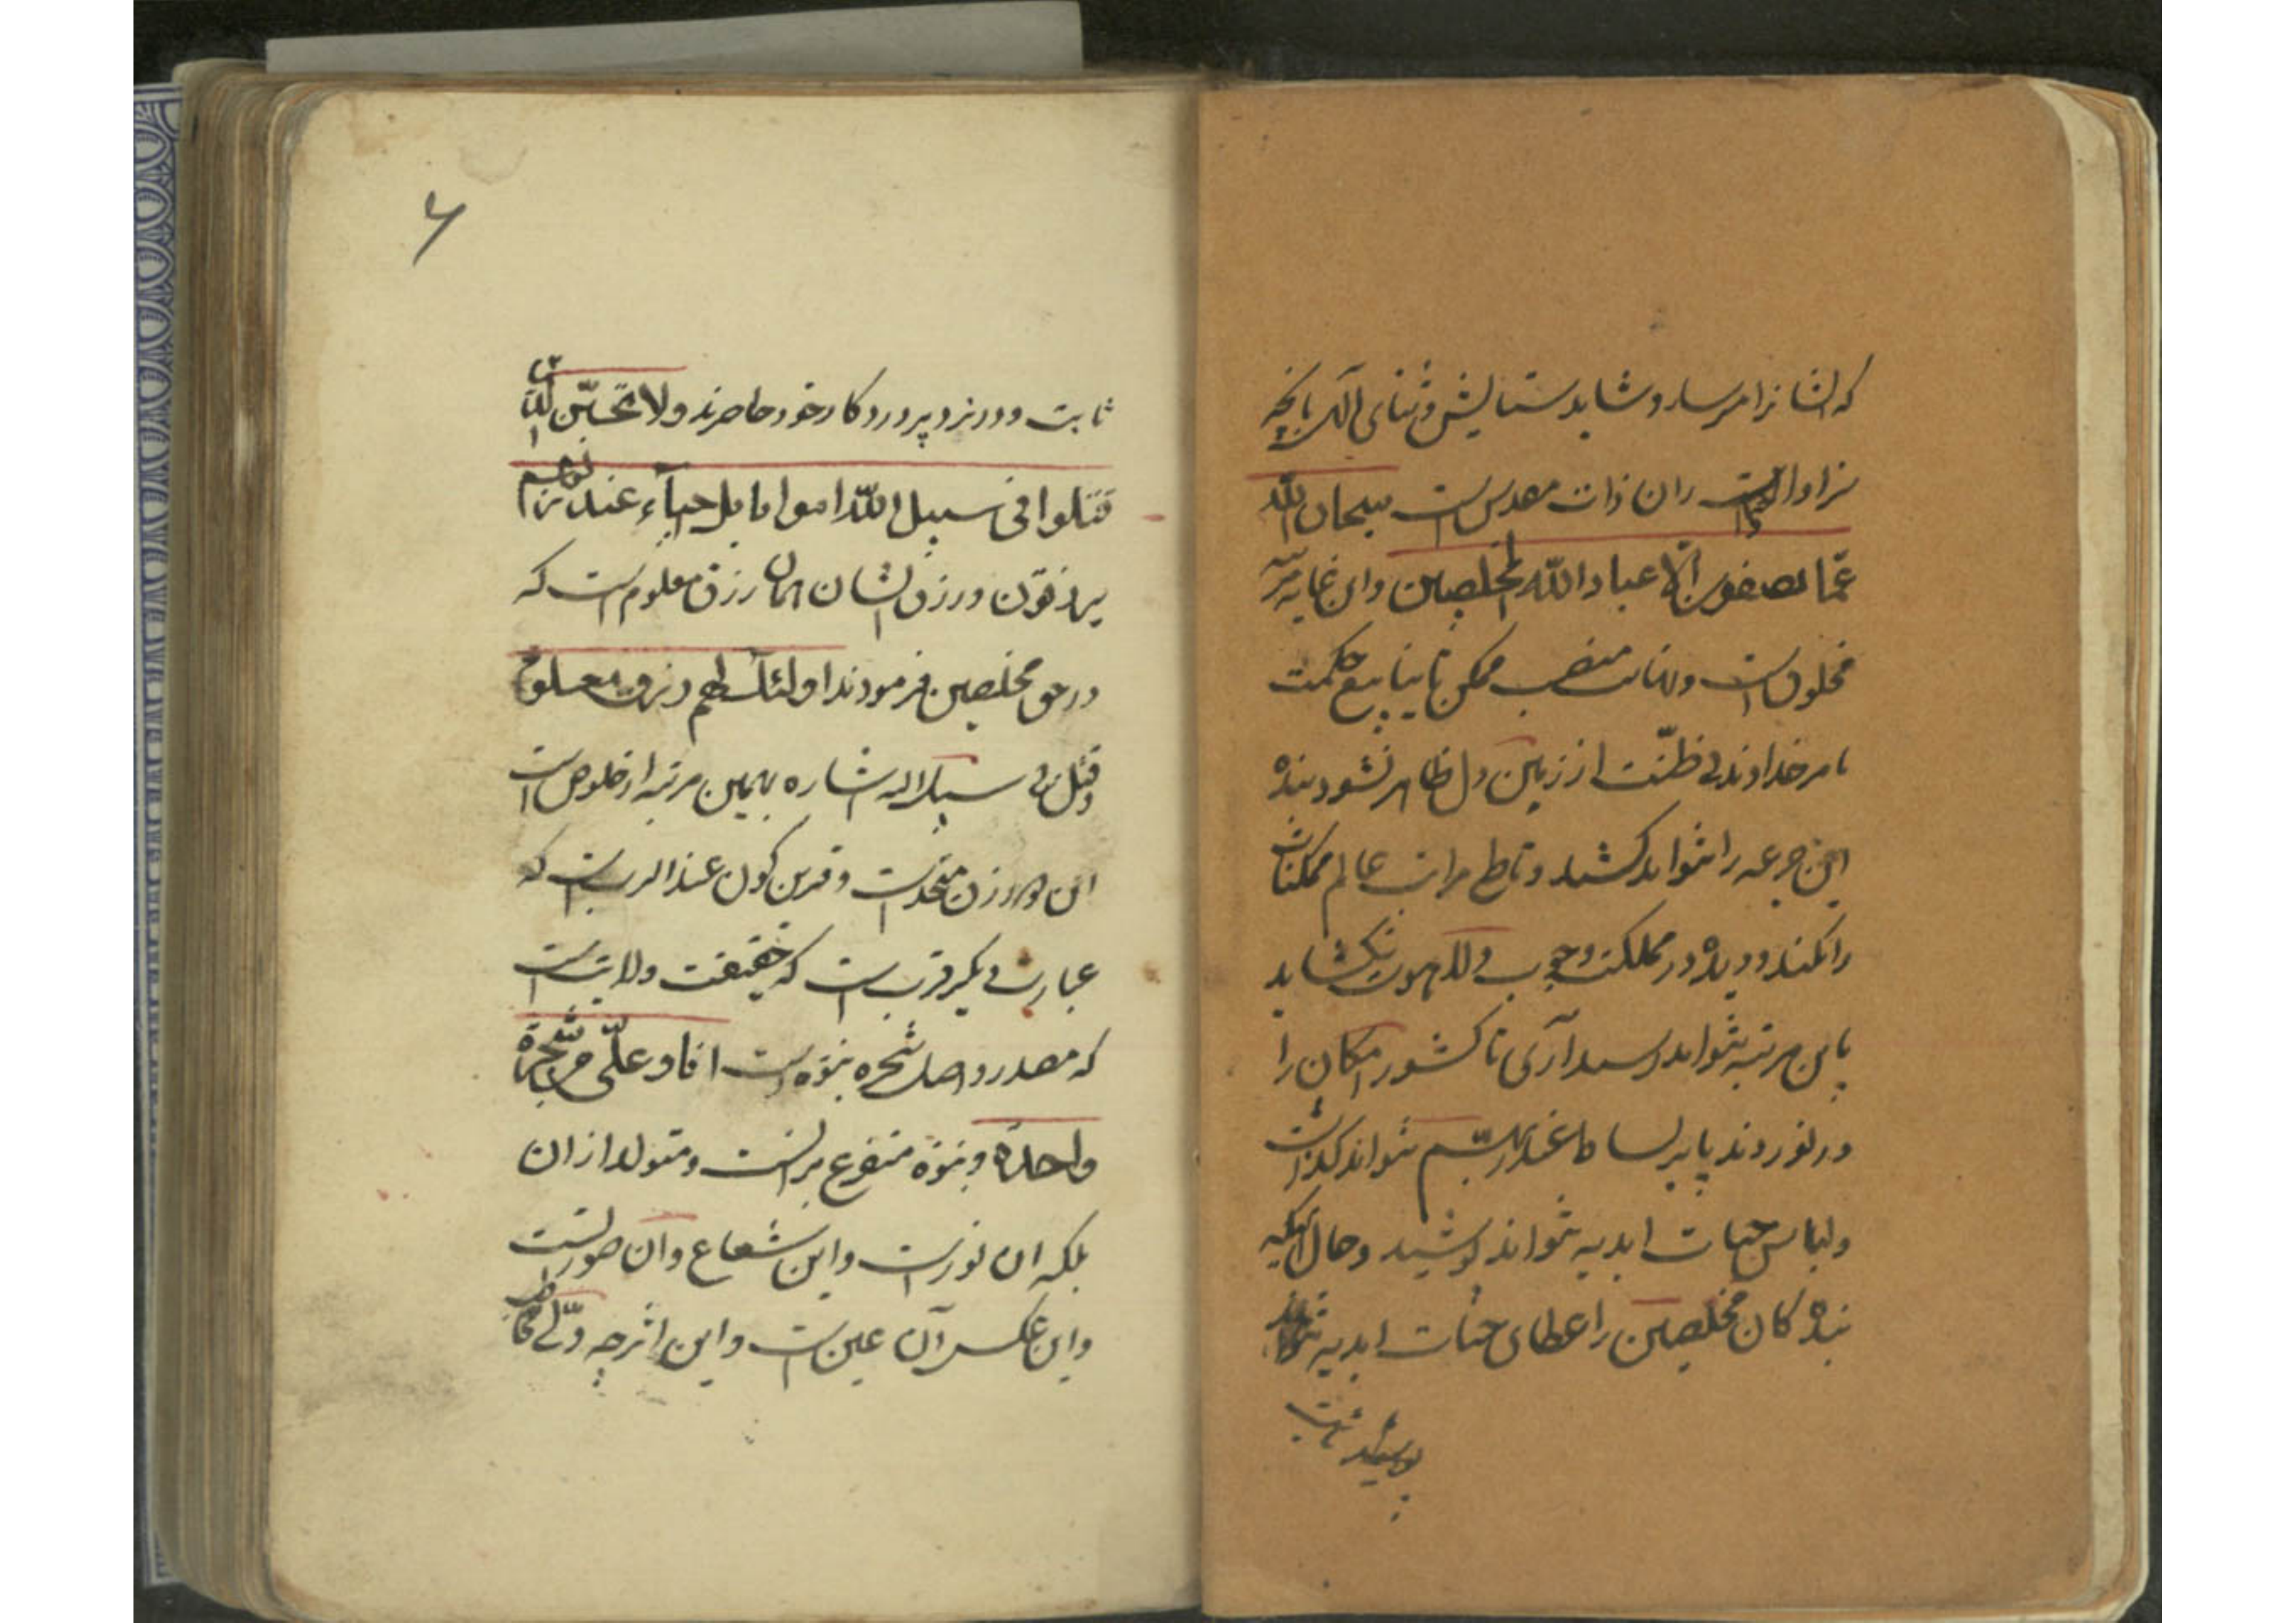 که ایشانرا میرسد و شاید ستایش و ثنای الهی بانچه
سزاوار است ران ذات مقدس است سبحان الله
عمّا یصفون الّا عباد الله المخلصین واین غایه مرتبه
مخلوق است و نهایت منصب ممکن تا ینابیع حکمت
بامر خداوند بی ظنّت از زمین دل ظاهر نشود بنده
این جرعه را نتواند کشید و تا طی مراتب عالم ممکنات
را نکند و دیده در مملکت وجوب و لاهوت نگشاید
باین مرتبه نتواند رسید آری تا کشور امکان را
در نوردند پا بر بساط عند ربهم نتواند گذاشت
ولباس حیات ابدیه نتواند پوشید و حال آنکه
بنده کان مخلصین را عطای حیات ابدیه
پوشید ثابت
۶
ثابت و در نزد پروردکار خود حاضرند ولا تحسبنّ الذین
قتلوا فی سبیل الله امواتا بل احیآء عند ربهم
یرزقون و رزق ایشان همان رزق معلوم است که
در حق مخلصین فرمودند اولئک لهم رزق معلوم
و قتل فی سبیل الله اشاره بهمین مرتبه از خلوص است
این و رزق متحد است و قرین کون عند الرب است که
عبارت دیکر قرب است که حقیقت ولایت است
که مصدر و اصل شجره نبوّه است انا و علیّ من شجرة
واحدة و نبوّه متفرع بر انست و متولد از ان
بلکه ان نور است و این شعاع و آن صورتست
و این عکس آن عین است و این اثر چه ولیّ